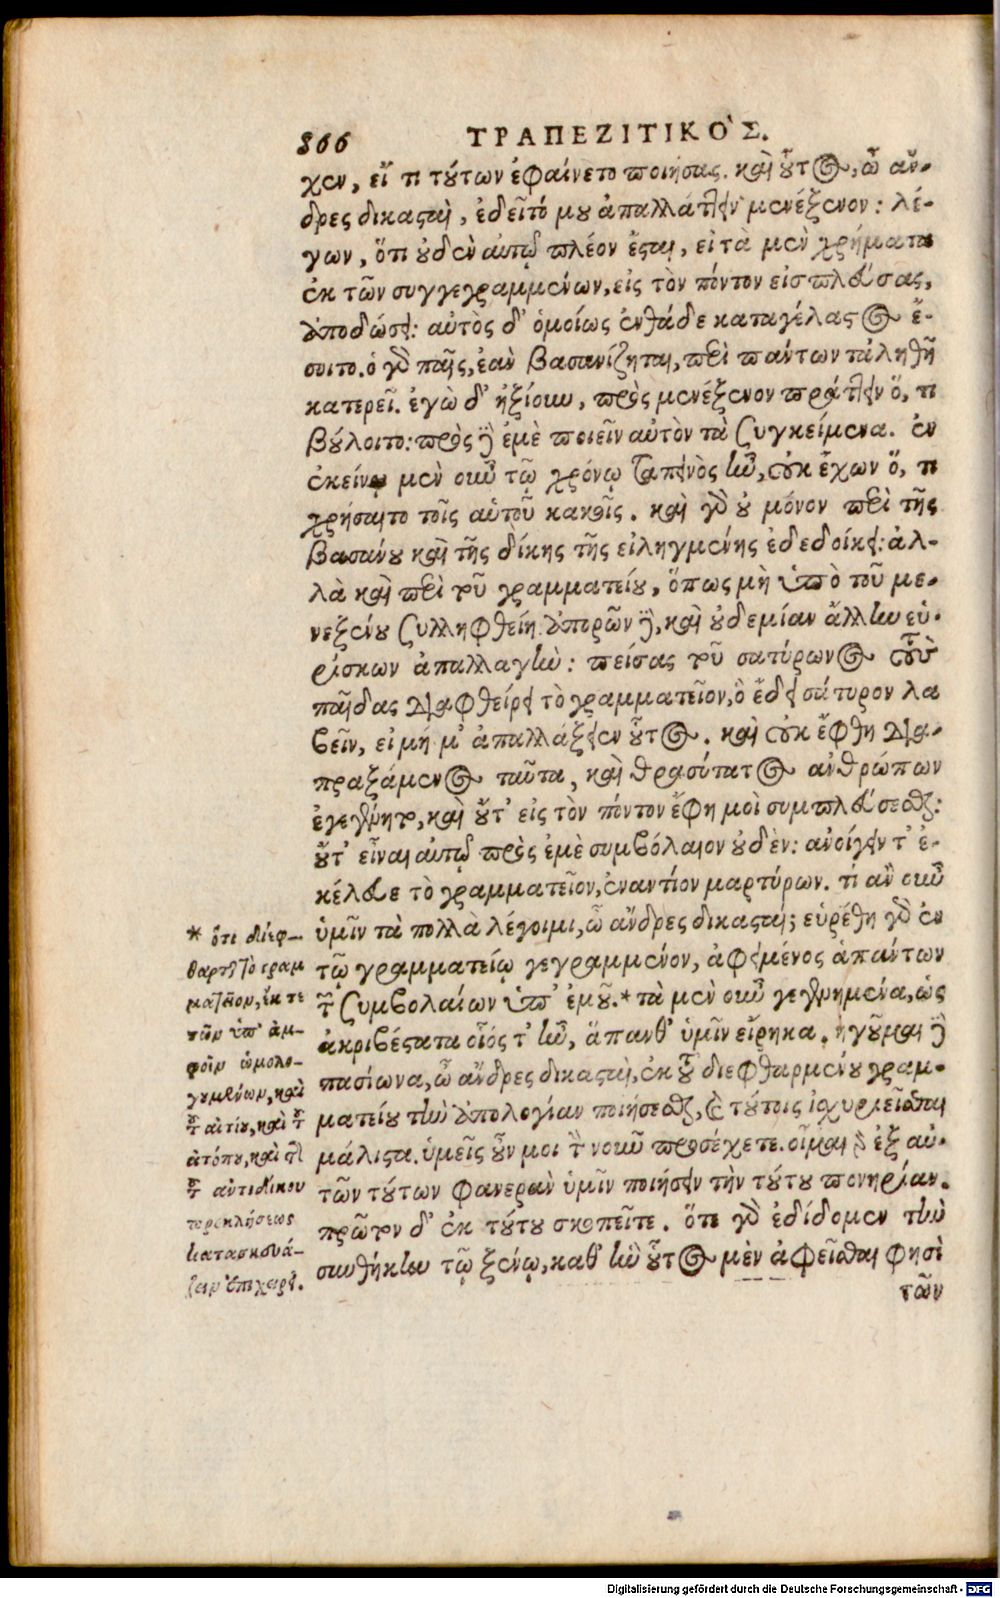 866 ΤΡΑΠΕΖΙΤΙΚΟ`Σ.
χεν, εἴ τι τούτων ἐφαίνετο ποιήσας. καὶ οὗτος, ὦ ἄν-
δρες δικασταὶ, ἐδεῖτό μου ἀπαλλάττειν μενέξενον: λέ-
γων, ὅτι οὐδὲν αὐτῷ πλέον ἔσται, εἰ τὰ μὲν χρήματα
ἐκ τῶν συγγεγραμμένων, εἰς τὸν πόντον εἰσπλεύσας,
ἀποδώσει: αὐτὸς δ' ὁμοίως ἐνθάδε καταγέλαστος ἔ-
σοιτο. ὁ γὸ παῖς, ἐὰν βασανίζηται, περὶ πάντων τἀληθῆ
κατερεῖ. ἐγὼ δ' ἠξίουν, πρὸς μενέξενον πράττειν ὅ, τι
βούλοιτο: πρὸς δὲ ἐμὲ ποιεῖν αὐτὸν τὰ συγκείμενα. ἐν
ἐκείνῳ μὲν οὖν τῷ χρόνῳ ταπεινὸς ἦν, οὐκ ἔχων ὅ, τι
χρήσαιτο τοῖς αὑτοῦ κακοῖς. καὶ γὸ οὐ μόνον περὶ τῆς
βασάνου καὶ τῆς δίκης τῆς εἰληγμένης ἐδεδοίκει: ἀλ-
λὰ καὶ περὶ τοῦ γραμματείου, ὅπως μὴ ὑπὸ τοῦ με-
νεξένου συλληφθείη. ἀπορῶν δὲ, καὶ οὐδεμίαν ἄλλην εὑ-
ρίσκων ἀπαλλαγὴν: πείσας τοῦ σατύρωνος τοὺς
παῖδας διαφθείρει τὸ γραμματεῖον, ὃ ἔδει σάτυρον λα
βεῖν, εἰ μή μ' ἀπαλλάξειεν οὗτος. καὶ οὐκ ἔφθη δια-
πραξάμενος ταῦτα, καὶ θρασύτατος ἀνθρώπων
ἐγεγένητο, καὶ οὔτ' εἰς τὸν πόντον ἔφη μοὶ συμπλεύσεσθαι:
οὔτ' εἶναι αὐτῷ πρὸς ἐμὲ συμβόλαιον οὐδὲν: ἀνοίγειν τ' ἐ-
κέλευε τὸ γραμματεῖον, ἐναντίον μαρτύρων. τί ἂν οὖν
ὑμῖν τὰ πολλὰ λέγοιμι, ὦ ἄνδρες δικασταί; εὑρέθη γὸ ἐν
τῷ γραμματείῳ γεγραμμένον, ἀφειμένος ἁπάντων
τῶν συμβολαίων ὑπ' ἐμοῦ.* τὰ μὲν οὖν γεγενημένα, ὡς
ἀκριβέστατα οἷός τ' ἦν, ἅπανθ' ὑμῖν εἴρηκα. ἡγοῦμαι δὲ
πασίωνα, ὦ ἄνδρες δικασταὶ, ἐκ τοῦ διεφθαρμένου γραμ-
ματείου τὴν ἀπολογίαν ποιήσεσθαι, καὶ τούτοις ἰσχυριεῖσθαι
μάλιστα. ὑμεῖς οὖν μοι τὸν νοῦν προσέχετε. οἶμαι γὰρ ἐξ αὐ-
τῶν τούτων φανερὰν ὑμῖν ποιήσειν τὴν τούτου πονηρίαν.
πρῶτον δ' ἐκ τούτου σκοπεῖτε. ὅτε γὸ ἐδίδομεν τὴν
συνθήκην τῷ ξένῳ, καθ' ἣν οὗτος μὲν ἀφεῖσθαι φησὶ
τῶν
* ὅτι διέφ-
θαρται τὸ γραμ
ματεῖον, ἔκ τε
τῶν ὑπ' ἀμ-
φοῖν ὡμολο-
γουμένων, καὶ
τοῦ αἰτίου, καὶ τοῦ
ἀτόπου, καὶ τῆς
τοῦ ἀντιδίκου
προκλήσεως
κατασκευά-
ζειν ἐπιχειρεῖ.
Digitalisierung gefördert durch die Deutsche Forschungsgemeinschaft - DFG